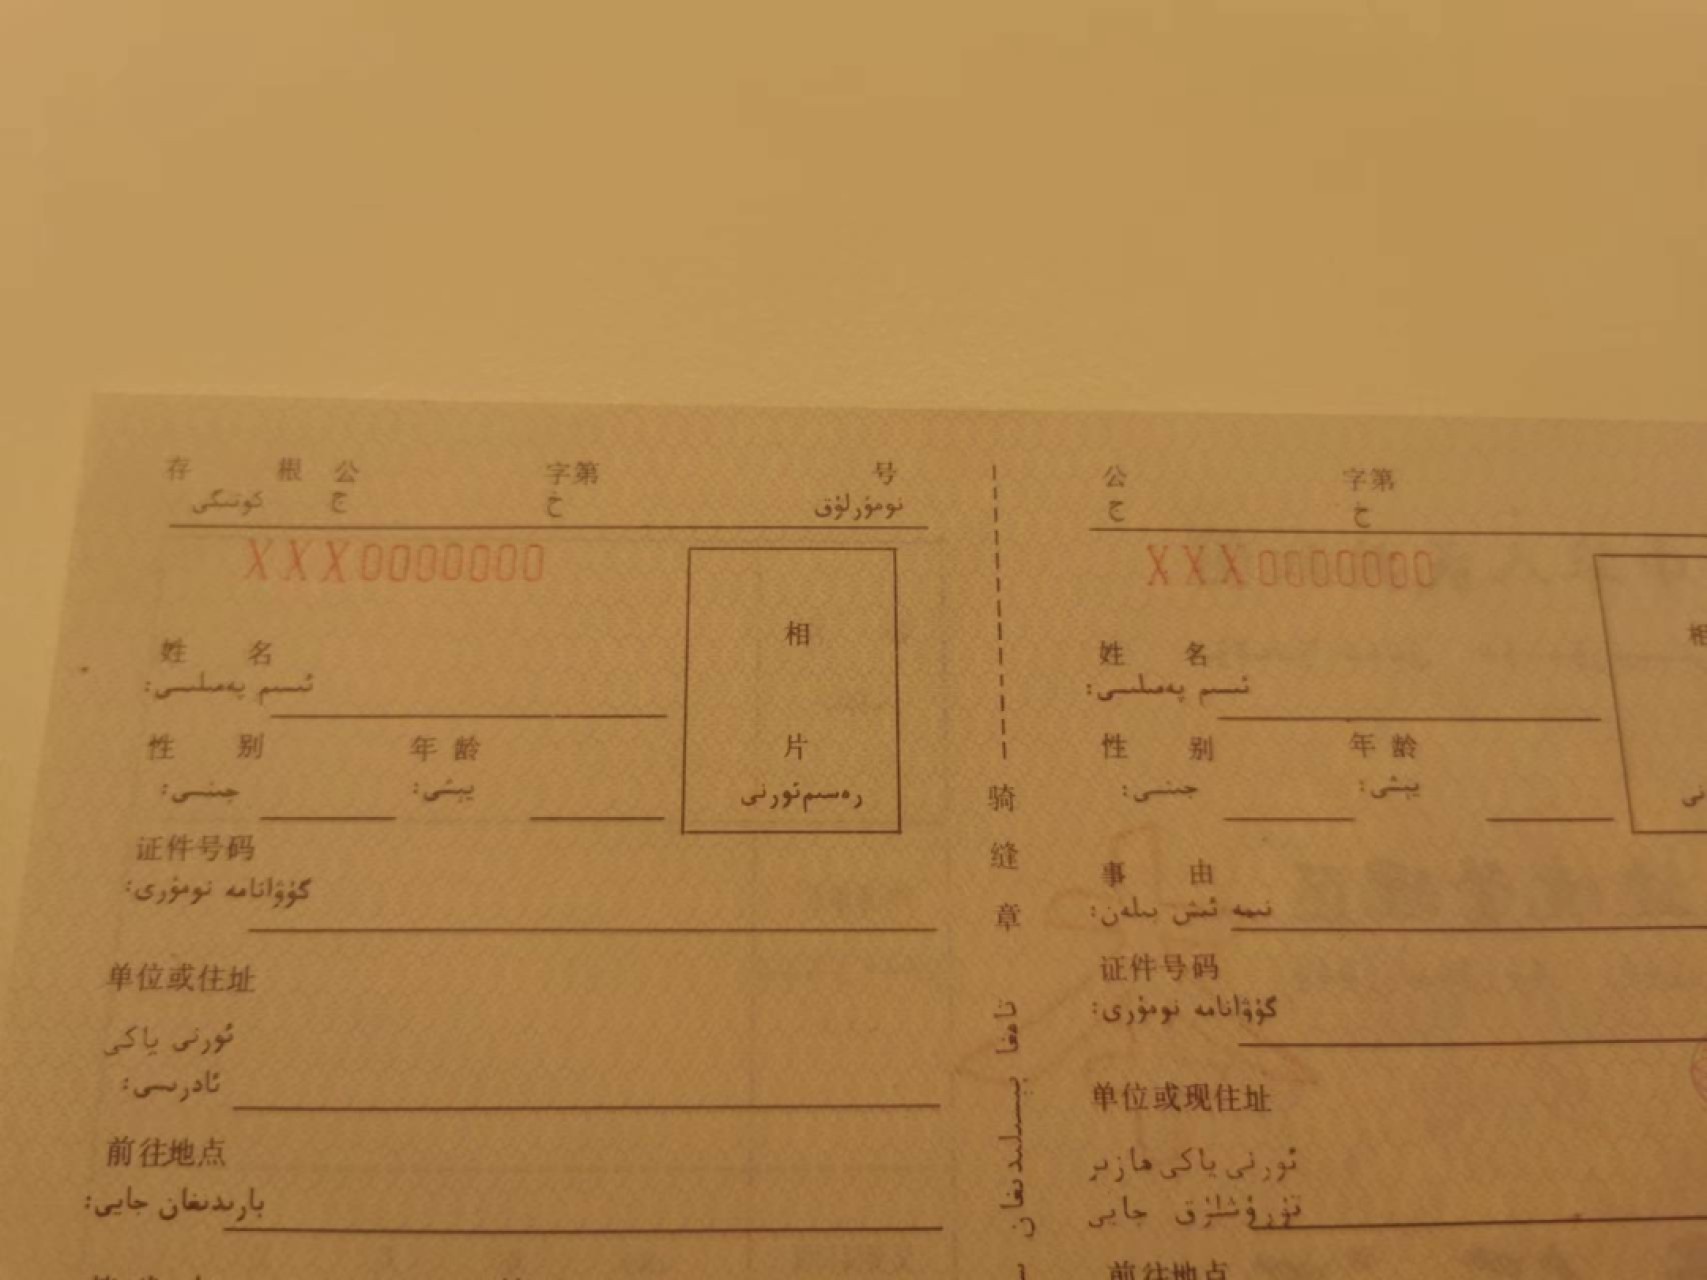 存 根 公 字第 号
كوتىگى ج خ نومۇرلۇق
XXX0000000
姓 名
ئىسىم پەمىلىسى:
相
片
رەسىم ئورنى
性 别 年 龄
جىنسى: يېشى:
证件号码
گۇۋانامە نومۇرى:
单位或住址
ئورنى ياكى
ئادرىسى:
前往地点
بارىدىغان جايى:
骑
缝
章
تامغا بېسىلىدىغان
公 字第
ج خ
XXX0000000
姓 名
ئىسىم پەمىلىسى:
相
性 别 年 龄
جىنسى: يېشى:
事 由
نىمە ئىش بىلەن:
证件号码
گۇۋانامە نومۇرى:
单位或现住址
ئورنى ياكى ھازىر
تۇرۇشلۇق جايى
前往地点